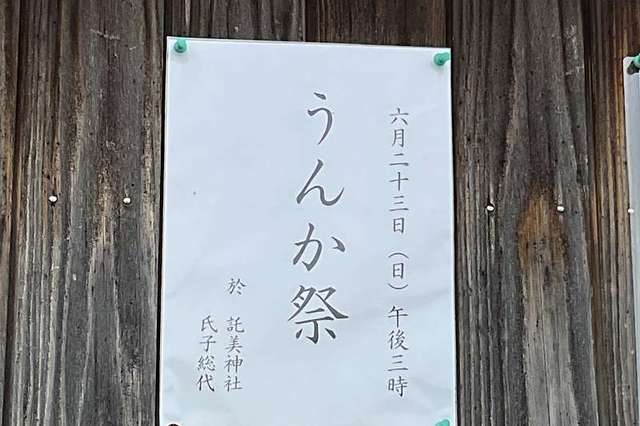 六月二十三日（日）午後三時
うんか祭
於 託美神社
氏子総代